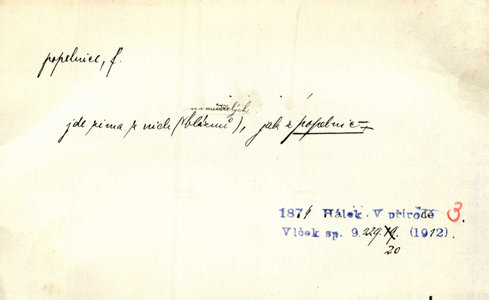 popelnice, f.
zamučených
jde zima z nich (bláznů), jak z popelnic
1874 Hálek V přírodě 3.
Vlček sp. 9. 229. 19. (1912).
20